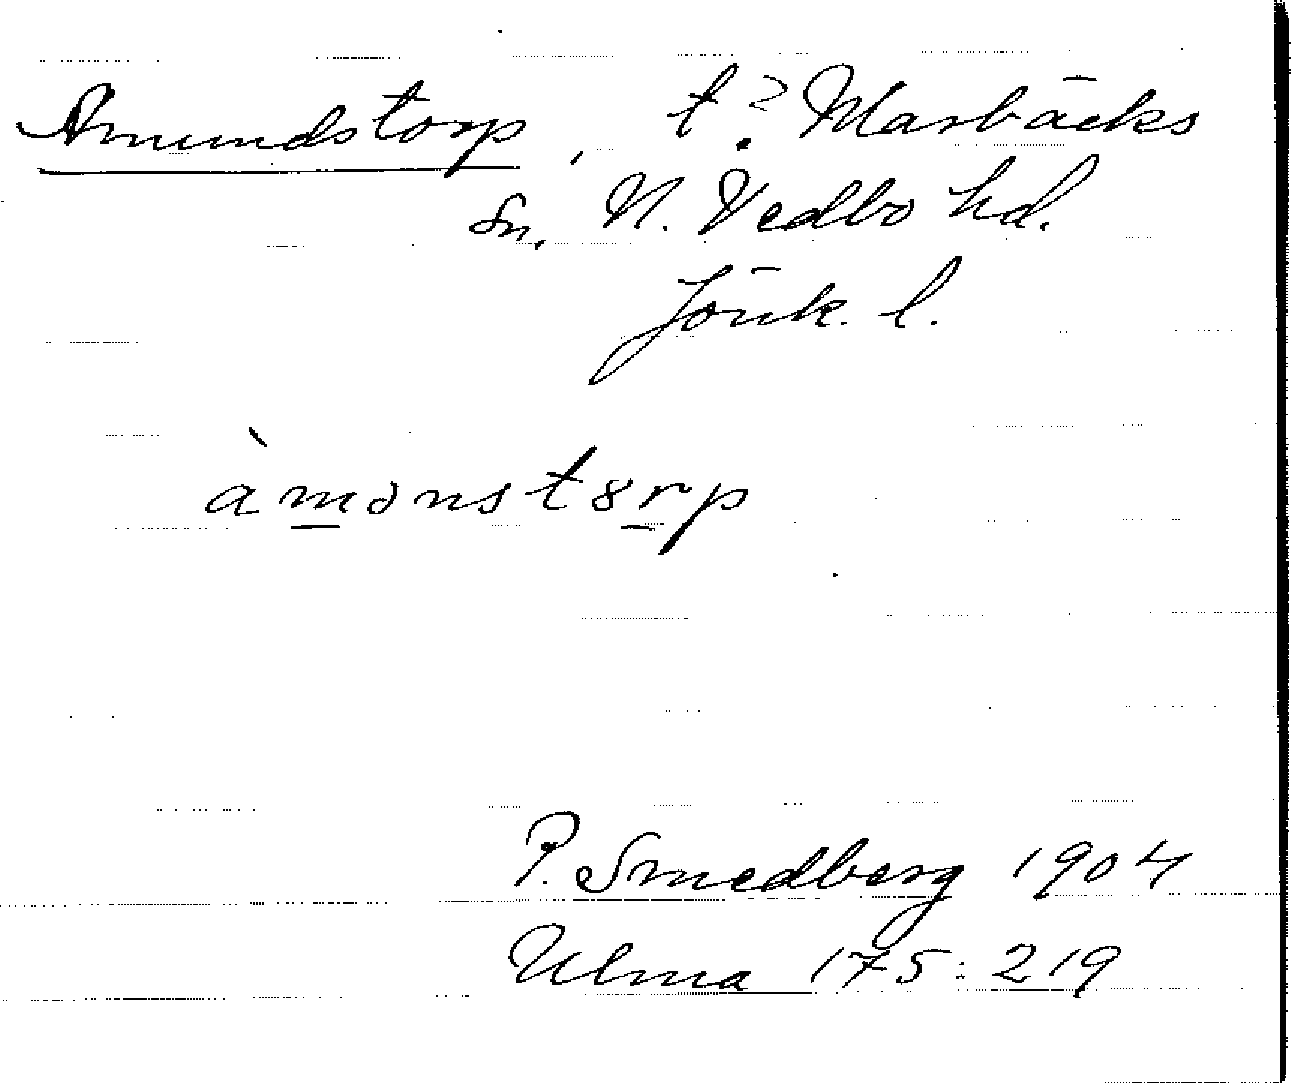 Amundstorp, t? Marbäcks
sn, N. Vedbo hd.
Jönk. l.
àmənstȣrp
P. Smedberg 1904
Ulma 175:219